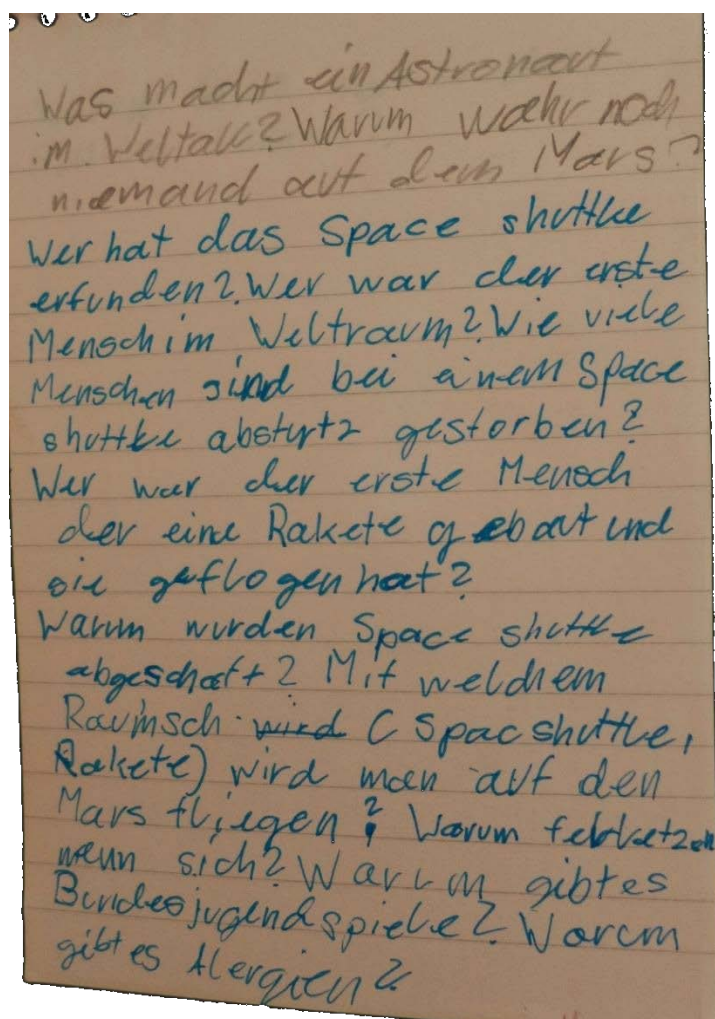 Was macht ein Astronaut
im Weltall? Warum waehr noch
niemand auf dem Mars?
Wer hat das Space shuttle
erfunden? Wer war der erste
Mensch im Weltraum? Wie viele
Menschen sind bei einem Space
shuttle absturtz gestorben?
Wer war der erste Mensch
der eine Rakete gebaut und
sie geflogen hat?
Warum wurden Space shuttle
abgeschaft? Mit welchem
Raumsch wird (Spac shuttle,
Rakete) wird man auf den
Mars fliegen? Warum
wenn sich? Warum gibt es
Bundesjugendspiele? Warum
gibt es Alergien?